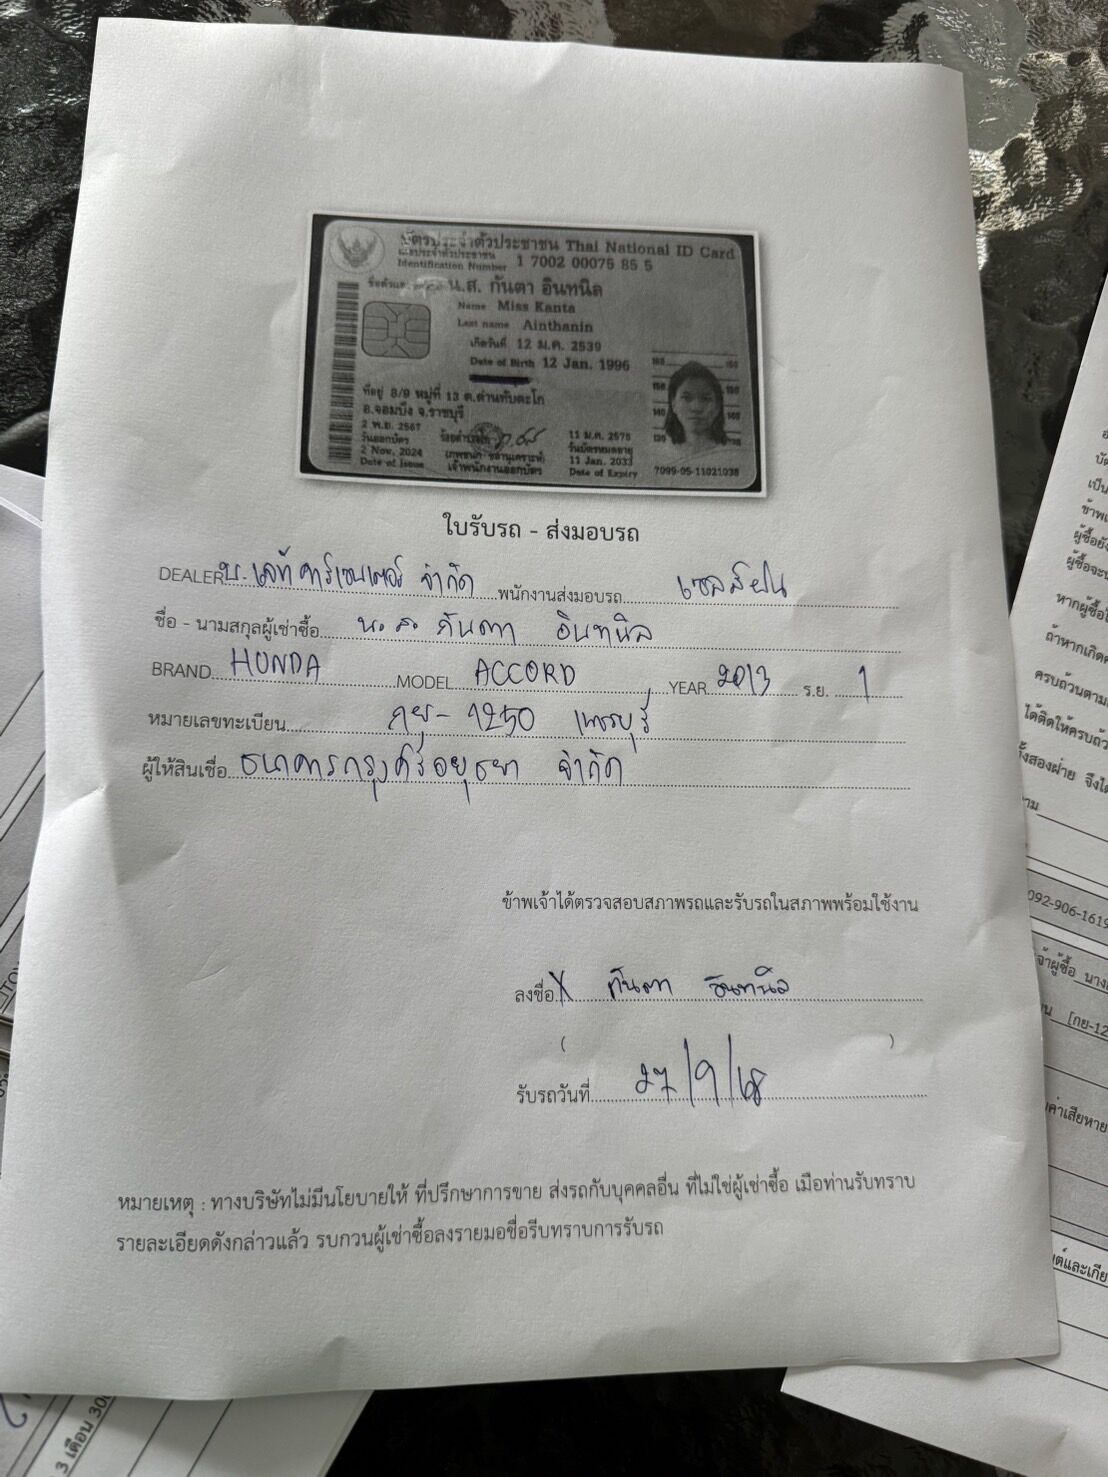 บัตรประจำตัวประชาชน Thai National ID Card
เลขประจำตัวประชาชน
Identification Number 1 7002 00075 85 5
น.ส. กันตา อินทนิล
Name Miss Kanta
Last name Ainthanin
เกิดวันที่ 12 ม.ค. 2539
Date of Birth 12 Jan. 1996
ที่อยู่ 8/9 หมู่ที่ 13 ต.ด่านทับตะโก
อ.จอมบึง จ.ราชบุรี
2 พ.ย. 2567
วันออกบัตร
2 Nov. 2024
Date of Issue
เจ้าพนักงานออกบัตร
11 ม.ค. 2576
วันบัตรหมดอายุ
11 Jan. 2033
Date of Expiry
7099-05-11021038
ใบรับรถ - ส่งมอบรถ
DEALER บ. เลท คาร์เซนเตอร์ จำกัด พนักงานส่งมอบรถ
ชื่อ - นามสกุลผู้เช่าซื้อ น.ส. กันตา อินทนิล
BRAND HONDA MODEL ACCORD YEAR 2013 ร.ย. 1
หมายเลขทะเบียน กย-1250 เพชรบุรี
ผู้ให้สินเชื่อ ธนาคารกรุงศรีอยุธยา จำกัด
ข้าพเจ้าได้ตรวจสอบสภาพรถและรับรถในสภาพพร้อมใช้งาน
ลงชื่อ X กันตา อินทนิล
( )
รับรถวันที่ 27/9/68
หมายเหตุ : ทางบริษัทไม่มีนโยบายให้ ที่ปรึกษาการขาย ส่งรถกับบุคคลอื่น ที่ไม่ใช่ผู้เช่าซื้อ เมื่อท่านรับทราบ
รายละเอียดดังกล่าวแล้ว รบกวนผู้เช่าซื้อลงรายมอชื่อรีบทราบการรับรถ
เป็น
ผู้ซื้อยัง
ผู้ซื้อจะ
หากผู้ซื้อ
ถ้าหากเกิด
ครบถ้วนตาม
ได้ติดให้ครบถ้ว
ทั้งสองฝ่าย จึงได้
092-906-1619
ผู้ซื้อ นาง
[กย-12
ค่าเสียหาย
3 เดือน 30